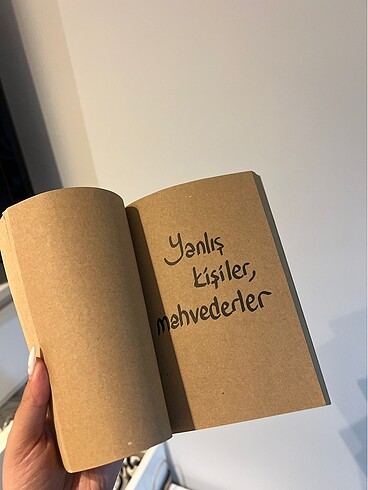 Yanlış
kişiler,
mahvederler